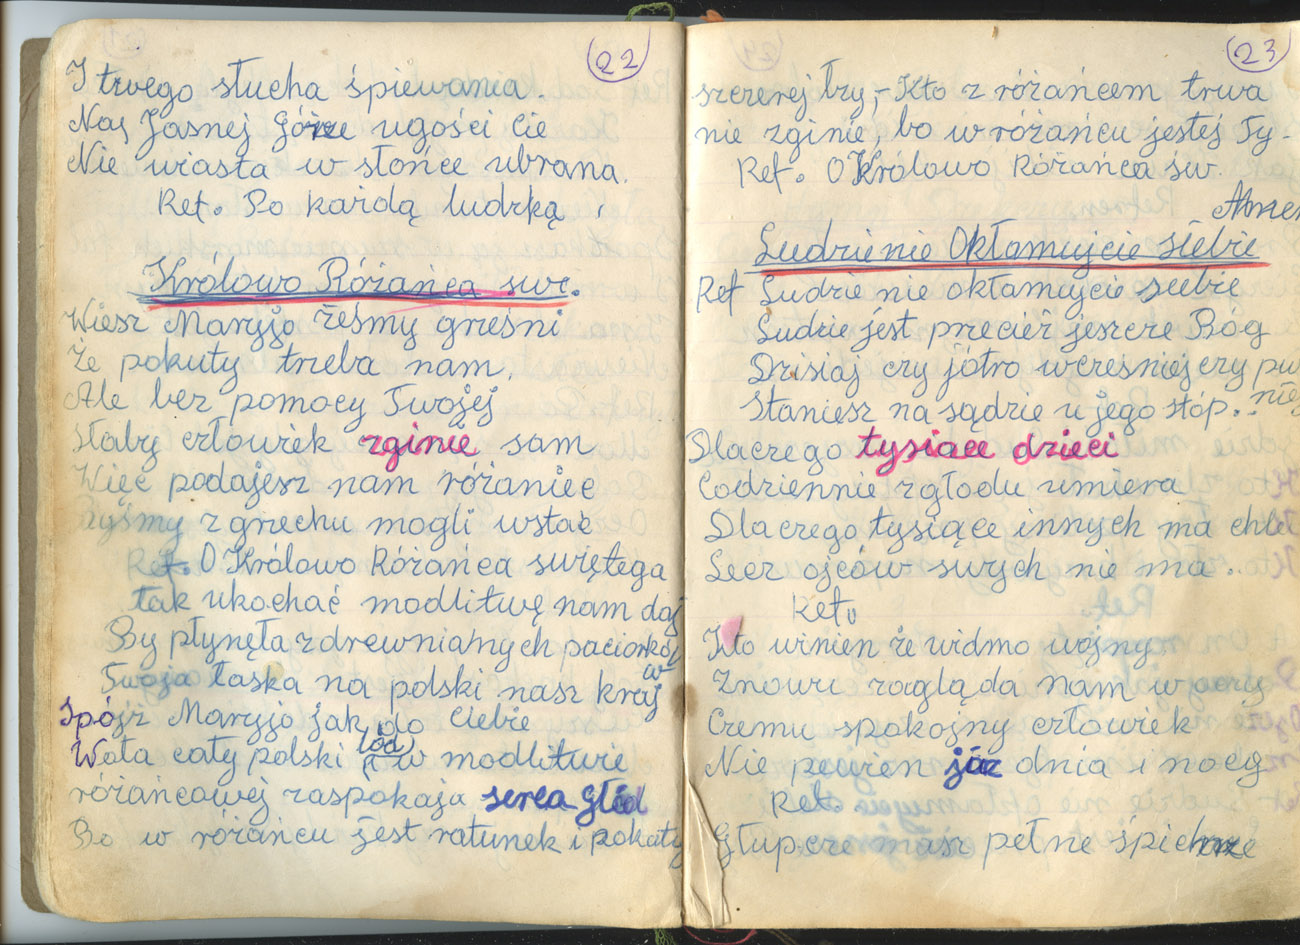 22
I twego słucha śpiewania.
Na Jasnej Górze ugości Cie
Nie wiasta w słońce ubrana.
Ref. Po każdą ludzką
Królowo Różańca św.
Wiesz Maryjo żeśmy greśni
Że pokuty trzeba nam,
Ale bez pomocy Twojej
Słaby człowiek zginie sam
Więc podajesz nam różaniec
Byśmy z grzechu mogli wstać
Ref. O Królowo Różańca swiętega
tak ukochać modlitwę nam daj
By płynęła z drewnianych paciorków
Twoja łaska na polski nasz kraj
Spójż Maryjo jak do Ciebie
Woła cały polski lód w modlitwie
różańcowej zaspokaja serca głód
Bo w różańcu jest ratunek i pokuty
23
szczerej łzy,- Kto z różańcem trwa
nie zginie, bo w różańcu jesteś Ty-
Ref. O Królowo Różańca sw.
Amen
Ludzie nie Okłamujcie siebie
Ref Ludzie nie okłamujcie siebie
Ludzie jest przecież jeszcze Bóg
Dzisiaj czy jótro wcześniej czy puź
niej
Staniesz na sądzie u jego stóp..
Dlaczego tysiace dzieci
Codziennie z głodu umiera
Dlaczego tysiące innych ma chleb
Lecz ojców swych nie ma.
Ref.
Kto winien że widmo wojny
Znowu zagląda nam w oczy
Czemu spokojny człowiek
Nie pewien jóż dnia i nocy
Ref.
Głupcze masz pełne śpichrze